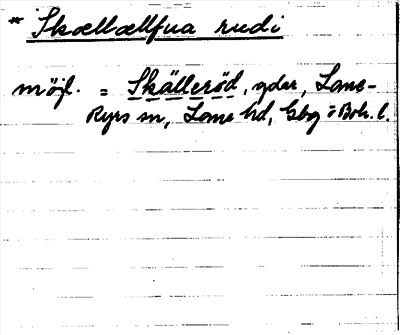 * Skællællfua rudi
möjl. = Skälleröd, gder, Lane-
Ryrs sn, Lane hd, Gbg o Boh. l.